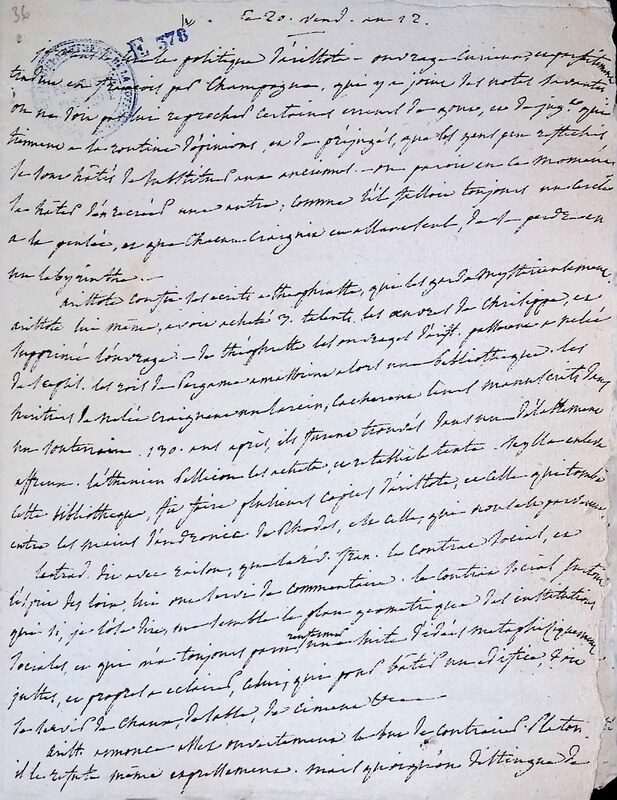 36
Le 20. Vend. an 12.
E 378
la politique d'aristote - ouvrage curieux, et parfaitement
traduit en françois par Champagne, qui y a joint des notes savantes
on ne doit pas lui reprocher certaines erreurs de gout, et de jugt. qui
tiennent à la routine d'opinions, et de préjugés, que les gens peu réfléchis
se sont hâtés de substituer aux anciennes. on paroit en ce moment
se hâter d'en recréer une autre; comme s'il falloit toujours un cercle
à la pensée, et que chacun craignit en allant seul, de se perdre en
un labyrinthe. -
aristote confia ses écrits a théophraste, qui les garda mystérieusement
aristote lui même, avoit acheté 3. talents les œuvres de
supprimé l'ouvrage. - de théophraste les ouvrages d'arist. passèrent a nélée
de scepsis. les rois de Pergame amassoient alors une bibliothèque. les
héritiers de nélée craignant un larcin, cachèrent leurs manuscrits dans
un souterrain. 130. ans après, ils furent trouvés dans un délabrement
affreux. l'athénien Apellicon les acheta, et rétablit le texte. Sylla enleva
cette bibliothèque, fit faire plusieurs copies d'aristote, et celle qui tomba
entre les mains d'andronic de Rhodes, est celle, que nous a
le trad. dit avec raison, que la rév. fran. le contrat social, et
l'esprit des loix, lui ont servi de commentaire. le contrat social surtout
qui si, je l'ose dire, me semble le plan géométrique des institutions
sociales, et qui m'a toujours paru renfermer une suite d'idées métaphisiquement
justes, et propres a éclairer, celui, qui pour bâtir un édifice, doit
se servir de chaux, de sable, de ciment &c -
arist. annonce assez ouvertement le but de contrarier Platon.
il le réfute même expressément. mais quoiqu'on distingue de